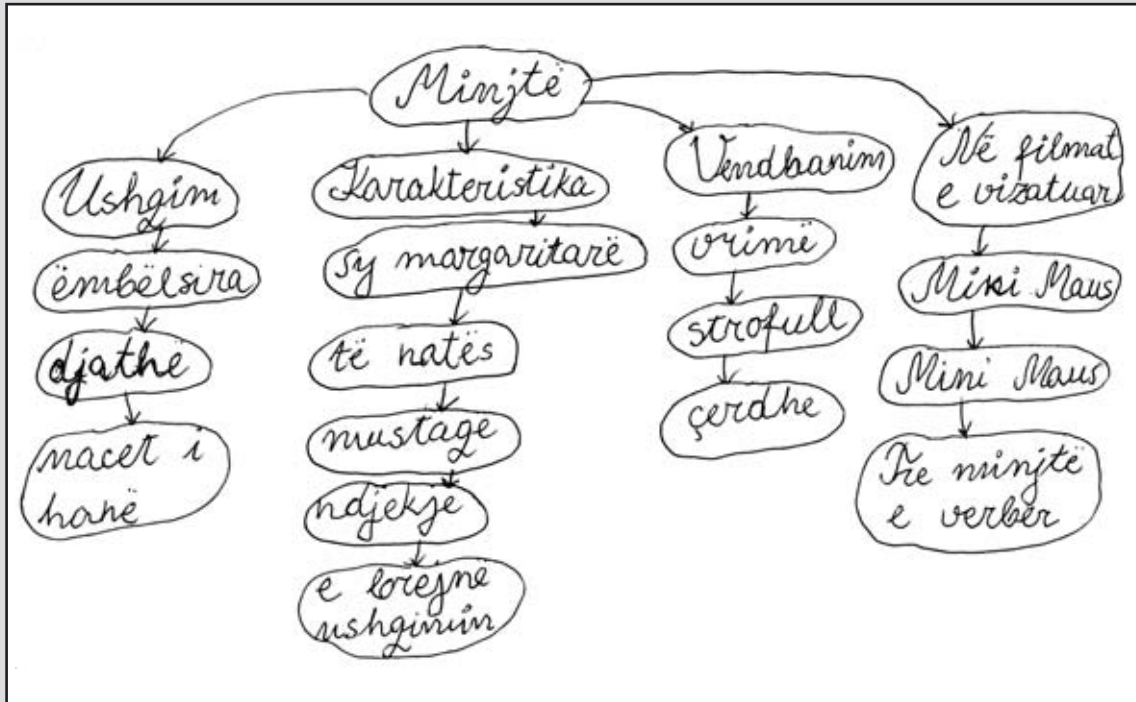 Minjtë
Ushqim
ëmbëlsira
djathë
macet i
hanë
Karakteristika
sy margaritarë
të natës
mustaqe
ndjekje
e brejnë
ushqimin
Vendbanim
vrimë
strofull
çerdhe
Në filmat
e vizatuar
Miki Maus
Mini Maus
Tre minjtë
e verbër